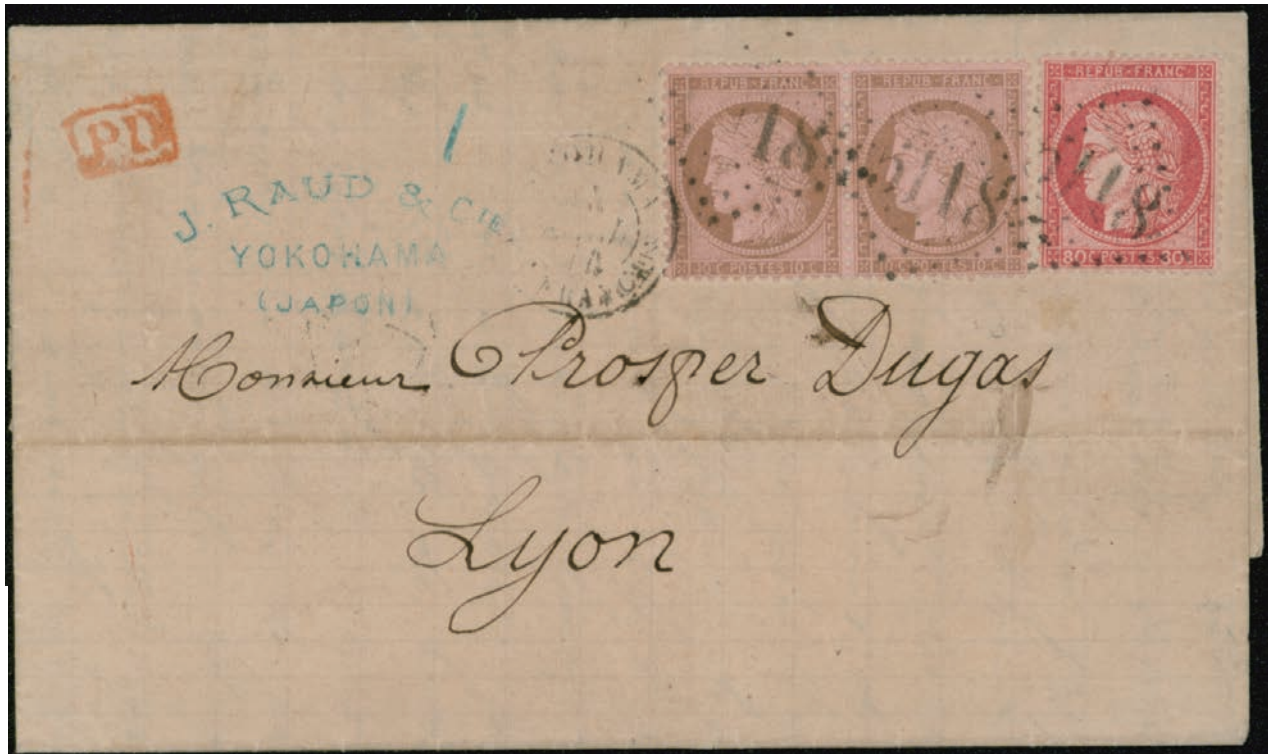 PD
J. RAUD & CIE
YOKOHAMA
(JAPON)
REPUB FRANC
10 C POSTES 10 C
REPUB FRANC
10 C POSTES 10 C
REPUB FRANC
80 C POSTES
5118
5118
Monsieur Prosper Dugas
Lyon